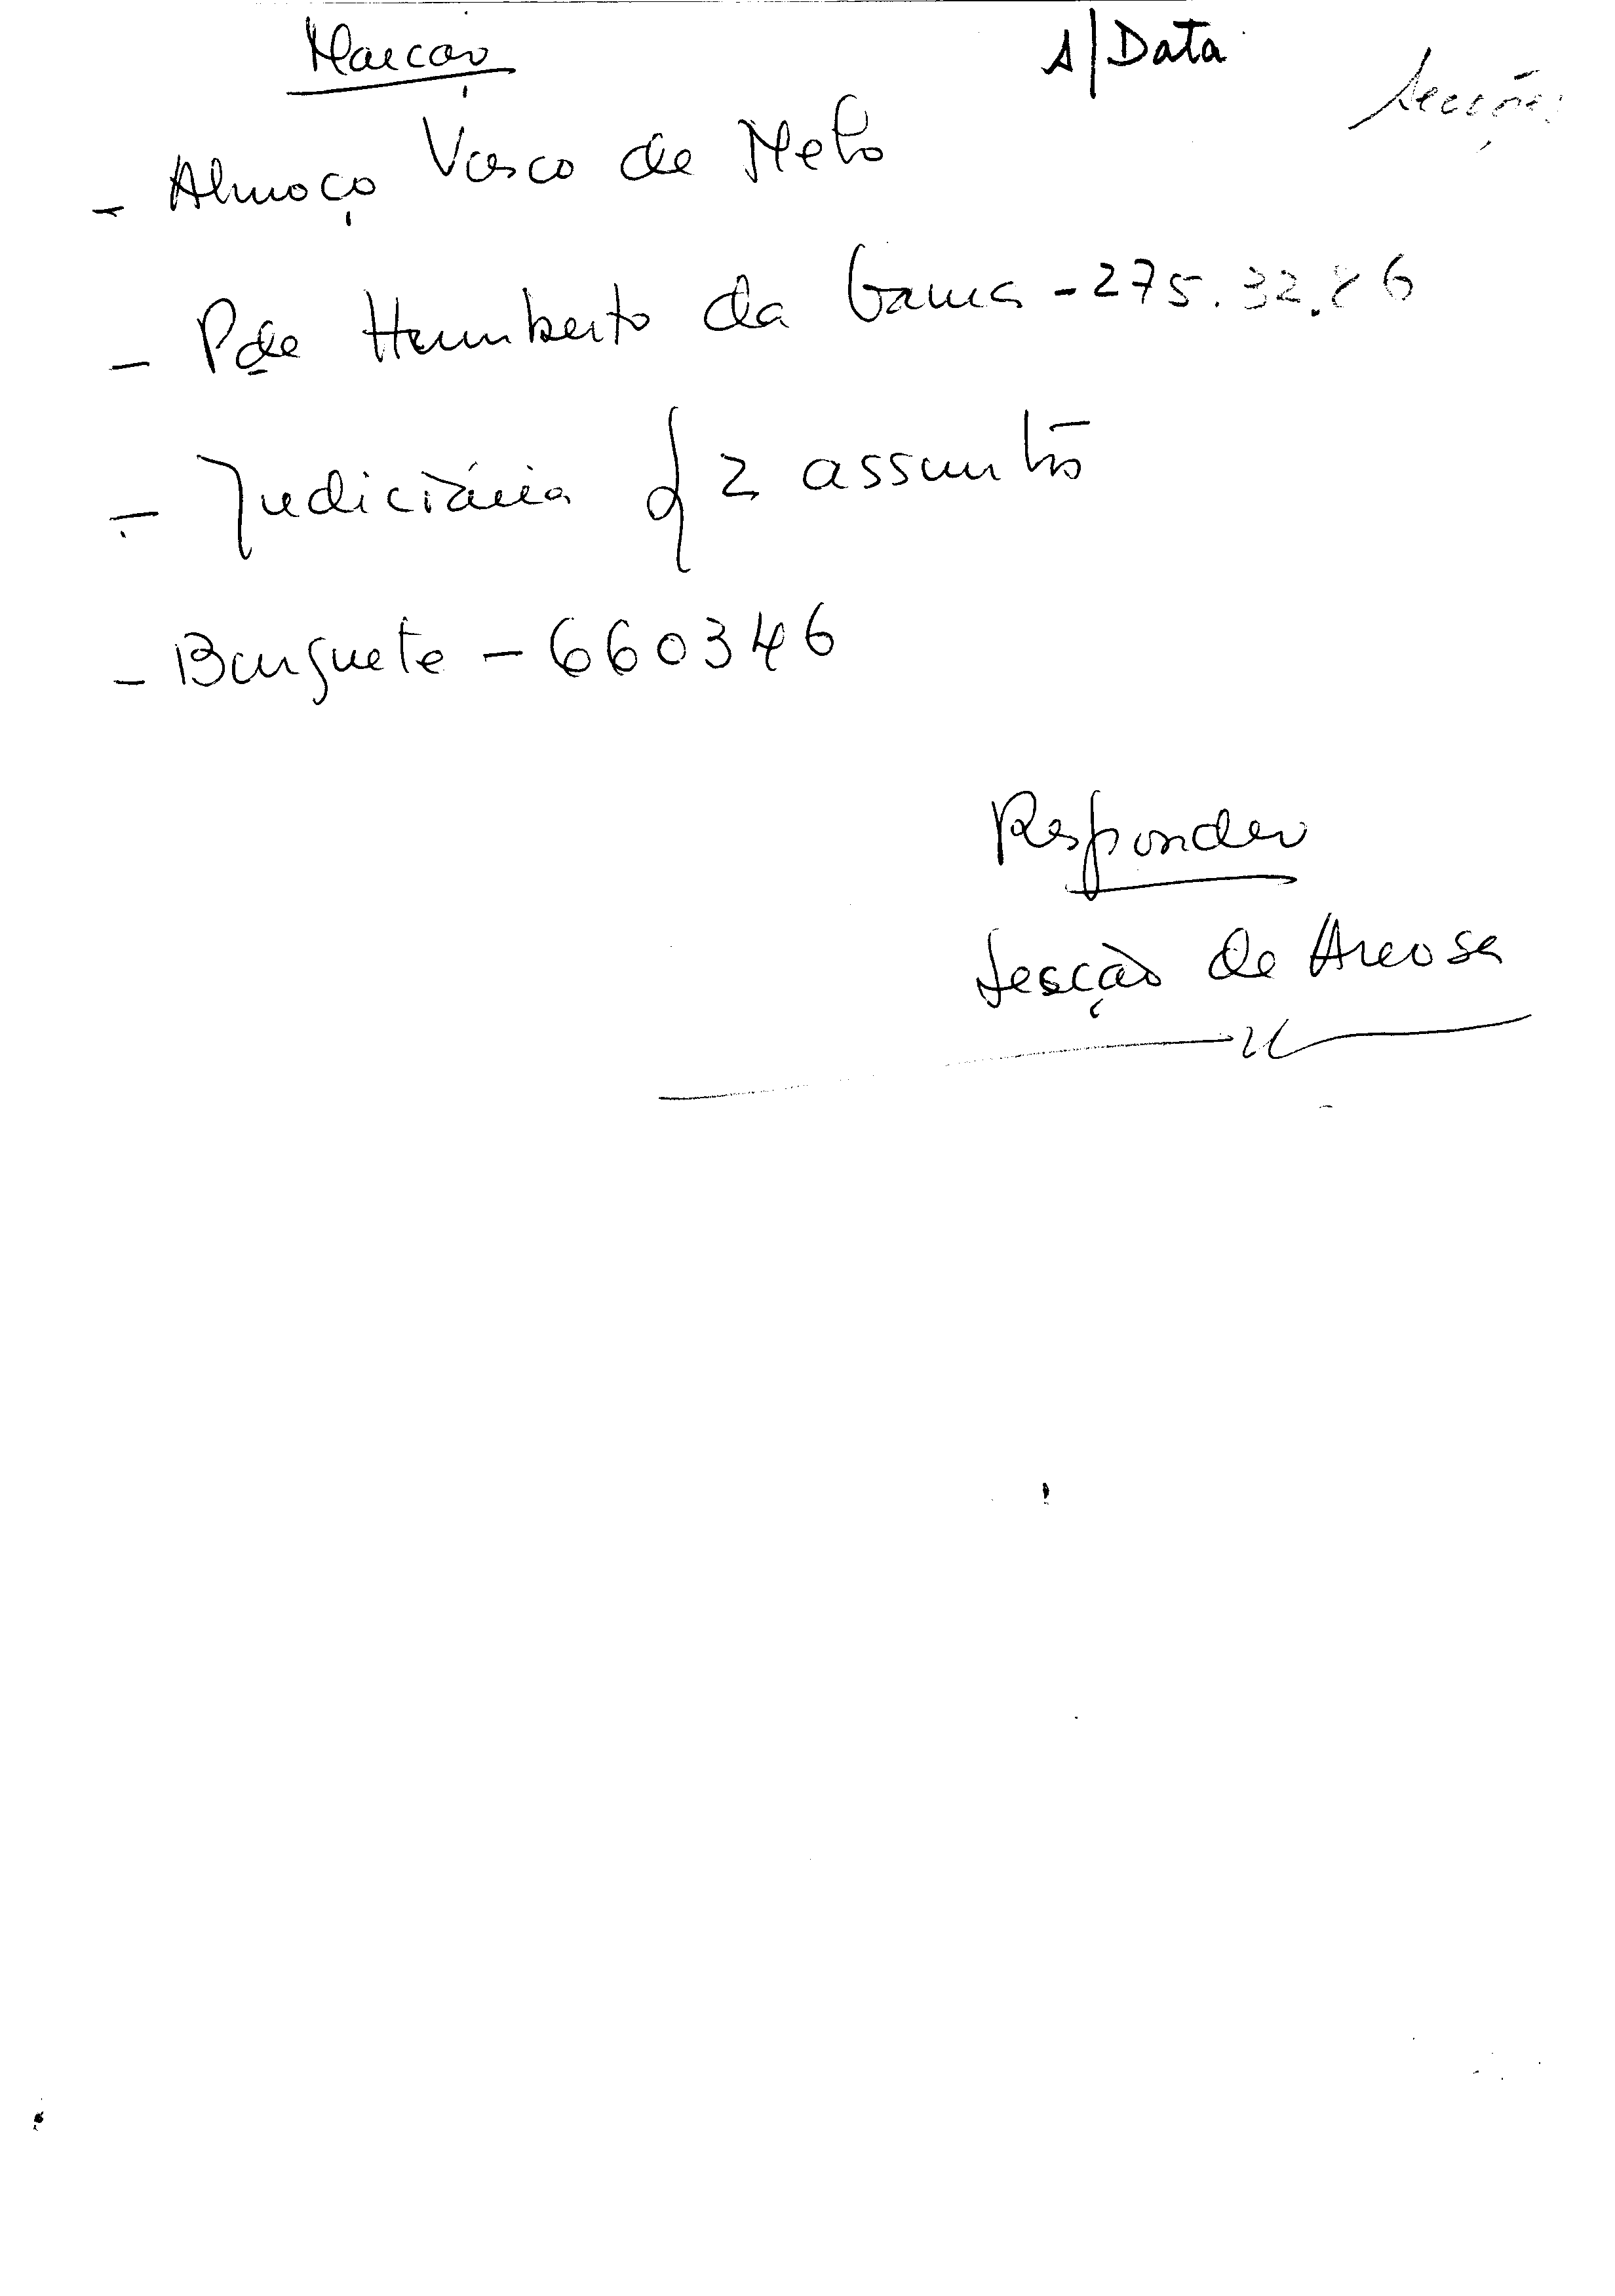 Marcar
S/Data
Secções
- Almoço Vasco de Melo
- Pde Humberto da Gama - 275.32.86
- Judiciária { 2 assuntos
- Burguete - 660346
Responder
Secção de Areosa